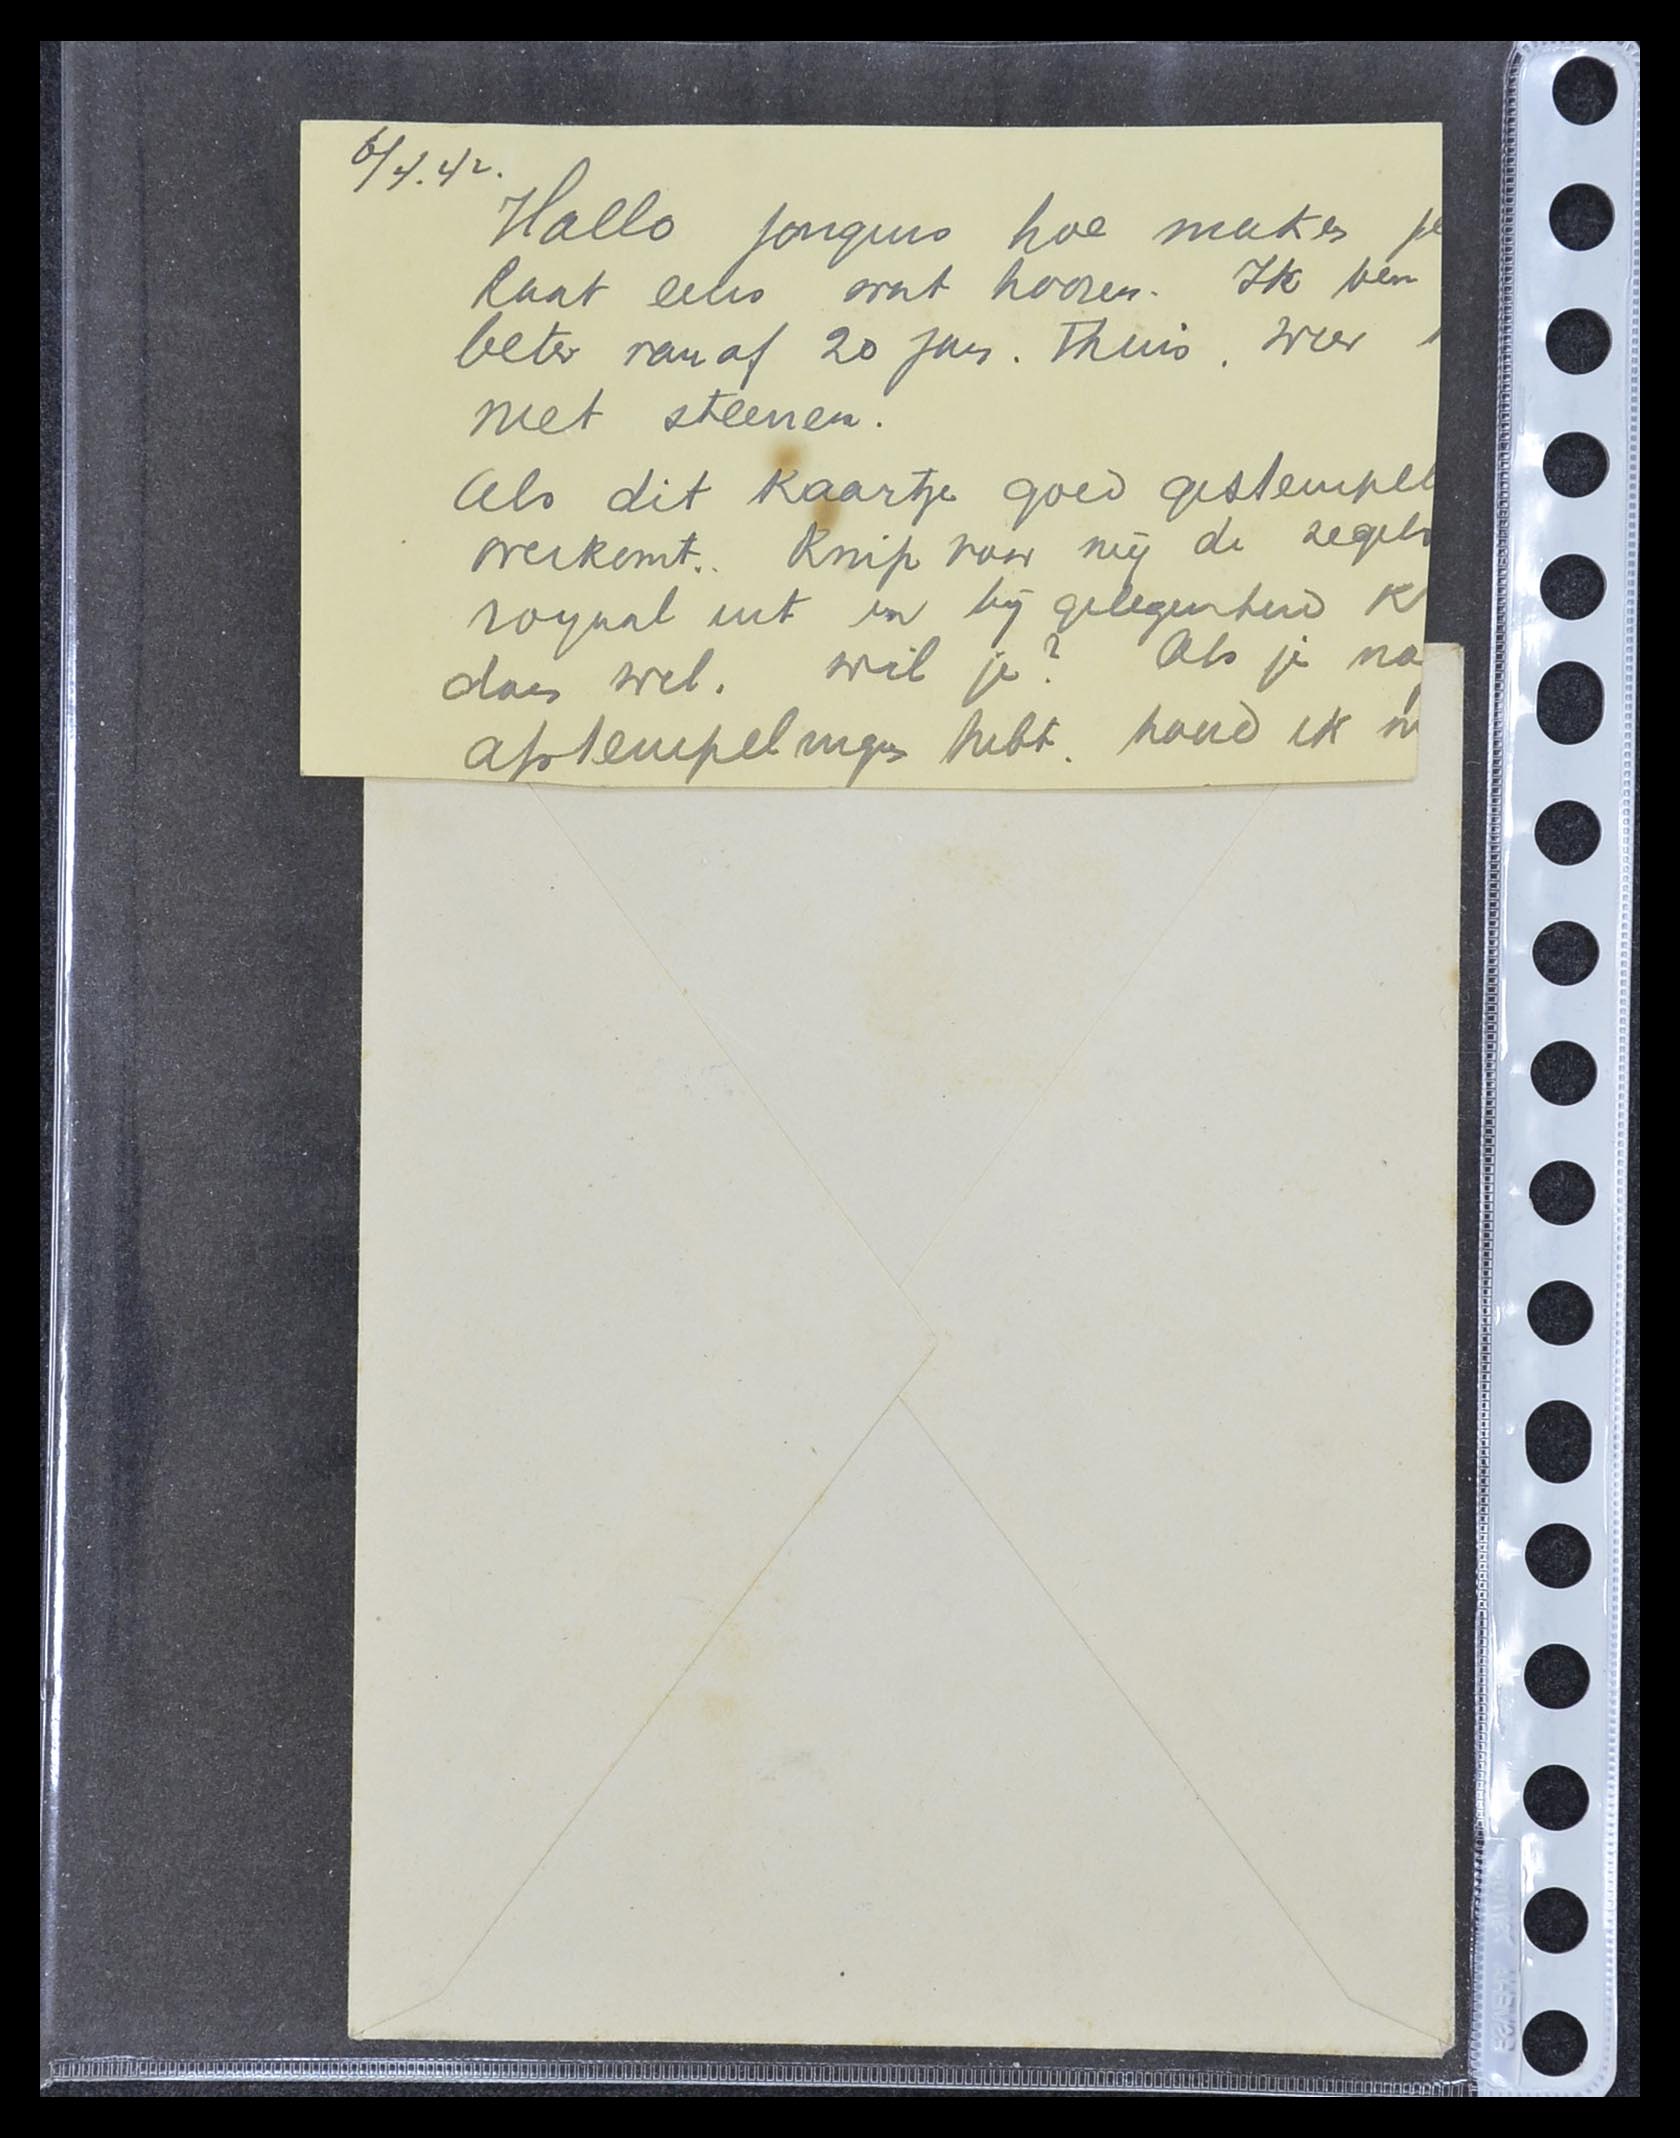 6/4.42.
Hallo jongens hoe maken je
Laat eens wat hooren. Ik ben
beter vanaf 20 jan. Thuis. weer
met steenen.
Als dit kaartje goed gestempeld
overkomt.. Knip voor mij de zegels
royaal uit en bij gelegenheid K
dan wel. wil je? Als je no
afstempelingen hebt. houd ik m